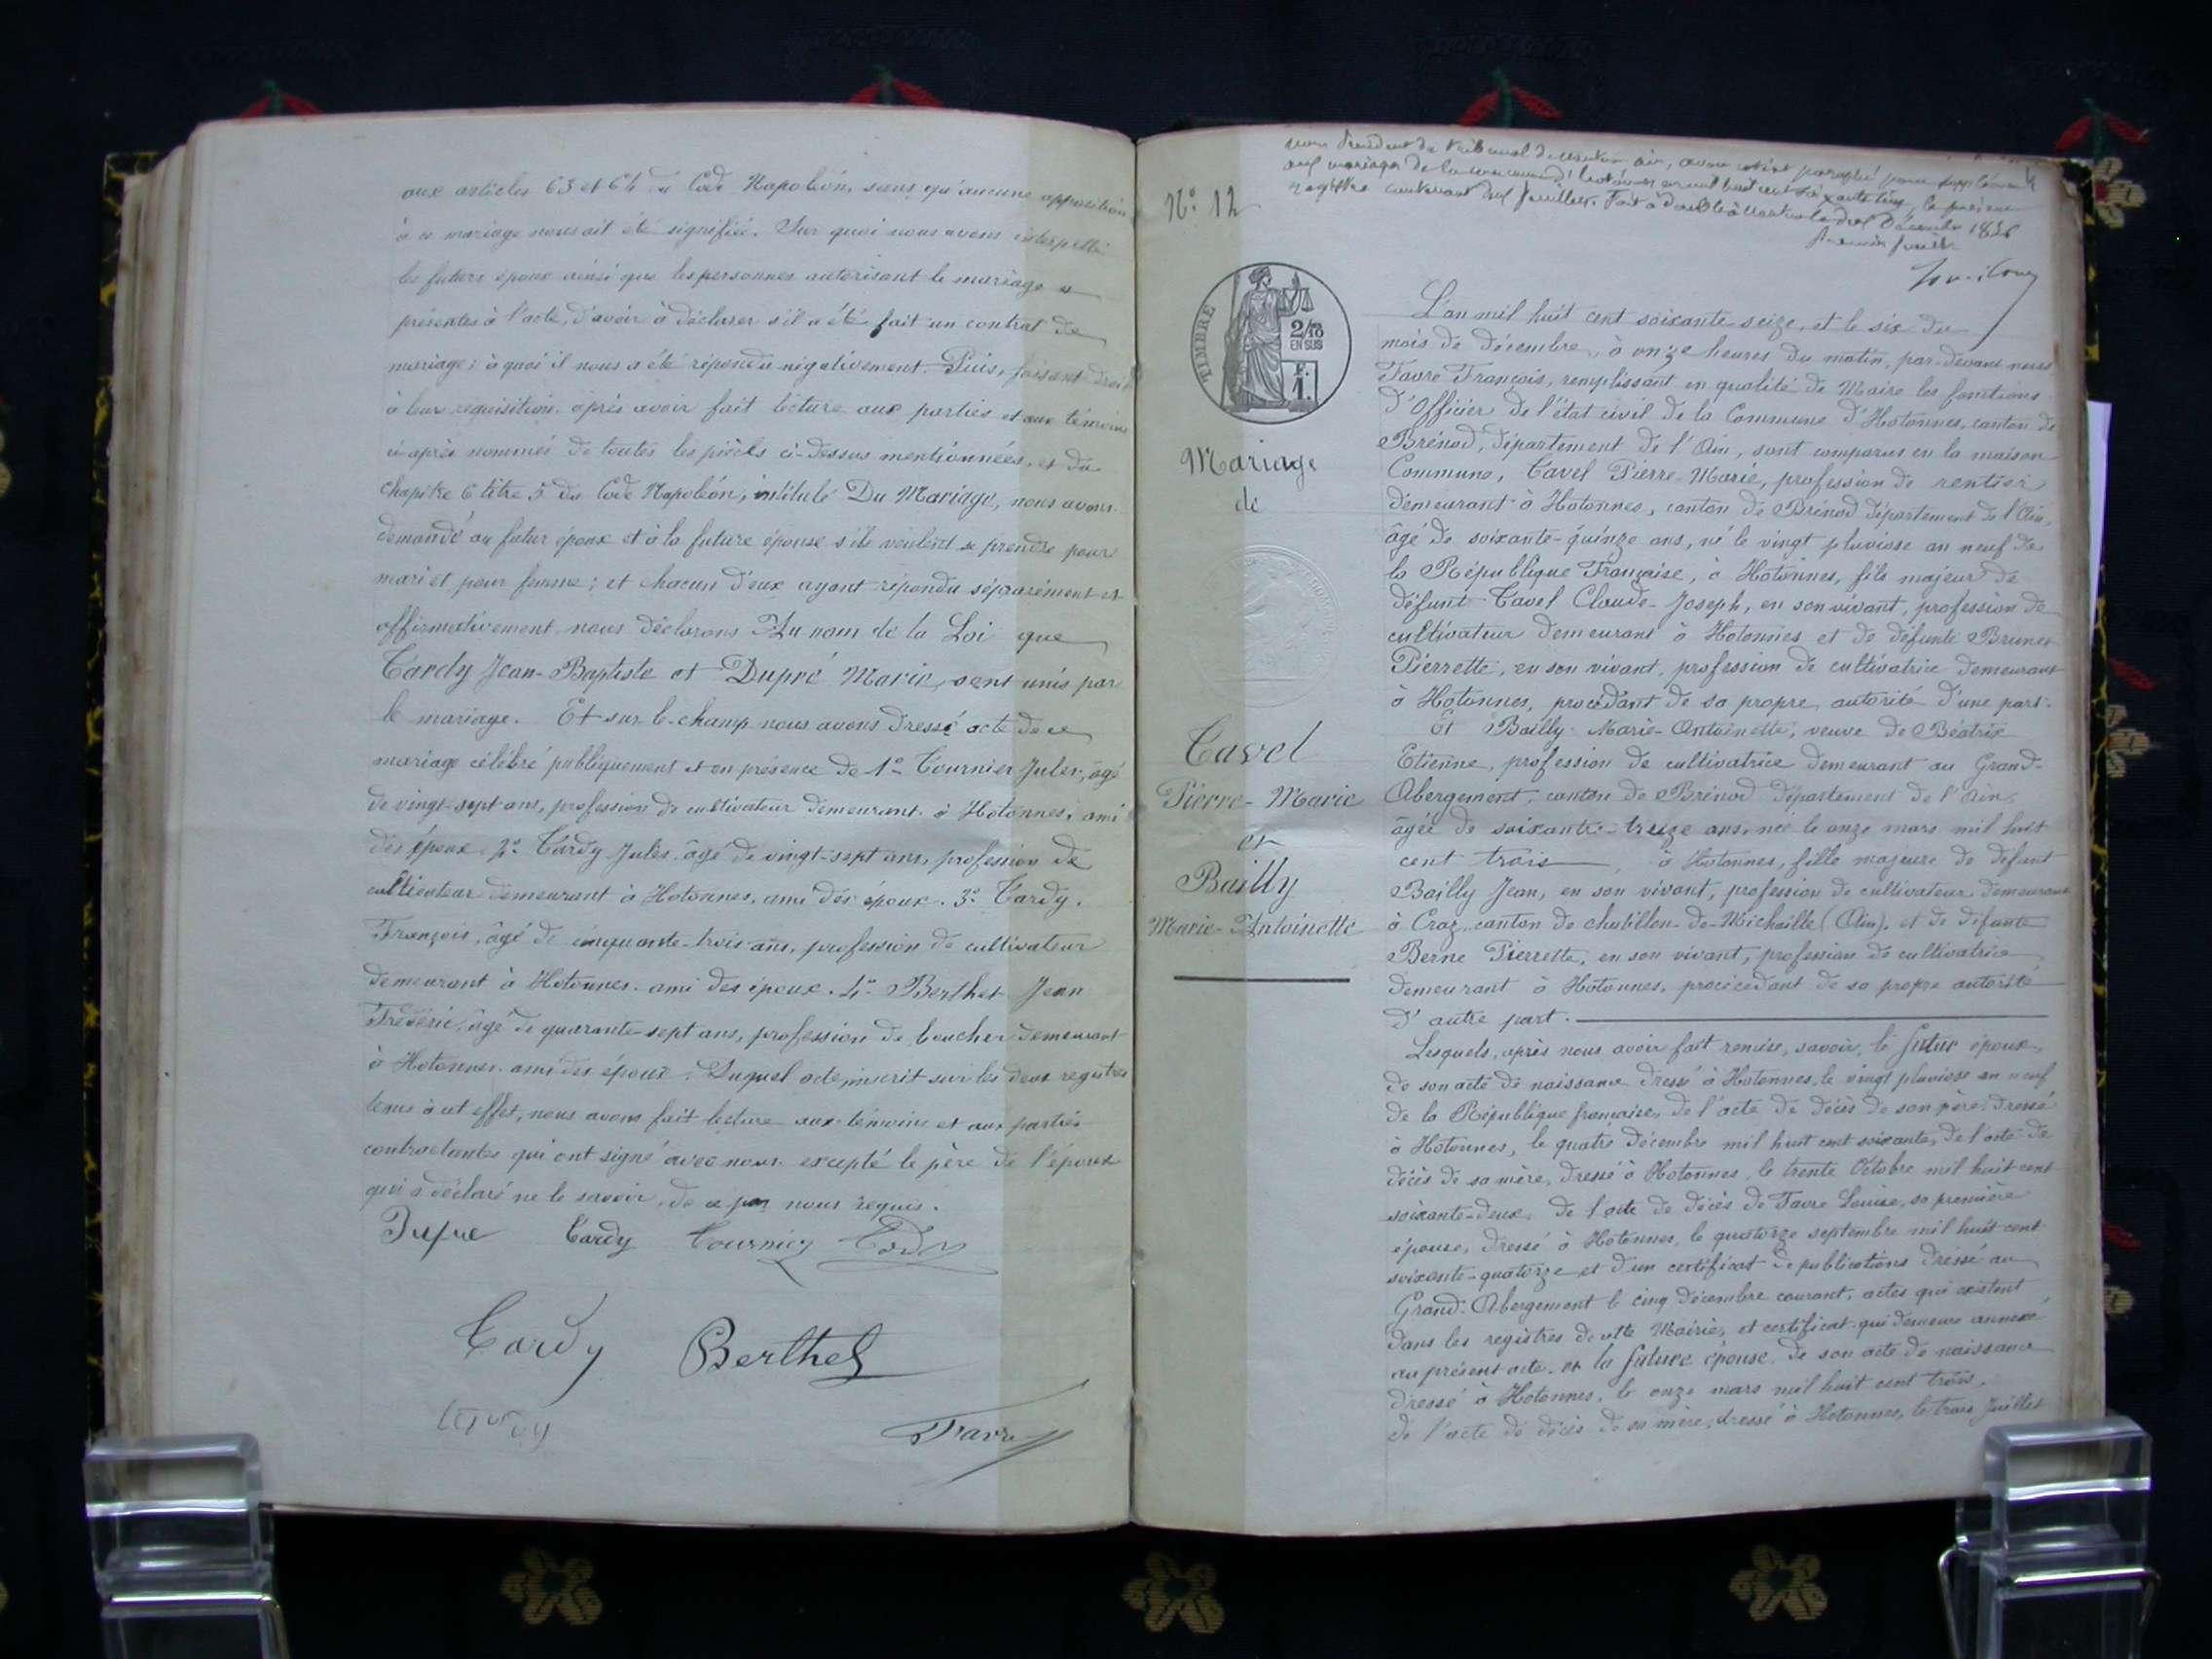 aux articles 63 et 64 du Code Napoléon, sans qu'aucune opposition
à ce mariage nous ait été signifiée. Sur quoi nous avons interpellé
les futurs époux ainsi que les personnes autorisant le mariage et
présentes à l'acte, d'avoir à déclarer s'il a été fait un contrat de
mariage; à quoi il nous a été répondu négativement. Puis, faisant droit
à leur réquisition, après avoir fait lecture aux parties et aux témoins
ci-après nommés de toutes les pièces ci-dessus mentionnées, et du
chapitre 6 titre 5 du Code Napoléon, intitulé Du Mariage, nous avons
demandé au futur époux et à la future épouse s'ils veulent se prendre pour
mari et pour femme; et chacun d'eux ayant répondu séparément et
affirmativement nous déclarons Au nom de la Loi que
Tardy Jean-Baptiste et Dupré Marie, sont unis par
le mariage. Et sur-le-champ nous avons dressé acte de ce
mariage célébré publiquement et en présence de 1° Tournier Jules, âgé
de vingt-sept ans, profession de cultivateur demeurant à Hotonnes, ami
des époux. 2° Tardy Jules, âgé de vingt-sept ans, profession de
cultivateur demeurant à Hotonnes, ami des époux. 3° Tardy
François, âgé de cinquante-trois ans, profession de cultivateur
demeurant à Hotonnes, ami des époux. 4° Berthet Jean
Frédéric, âgé de quarante-sept ans, profession de boucher demeurant
à Hotonnes, ami des époux. Duquel acte, inscrit sur les deux registres
tenus à cet effet, nous avons fait lecture aux témoins et aux parties
contractantes qui ont signé avec nous excepté le père de l'époux
qui a déclaré ne le savoir, de ce par nous requis.
Dupre Tardy Tournier Tardy
Tardy Berthet
tardy Favre
N° 12
président du tribunal de Nantua Ain, avons coté et paraphé pour supplément
aux mariages de la commune d'Hotonnes le présent
registre contenant deux feuillets. Fait à double à Nantua le Décembre
Premier feuillet
TIMBRE
2/10
EN SUS
F.
1.
Mariage
de
Cavel
Pierre-Marie
et
Bailly
Marie-Antoinette
L'an mil huit cent soixante-seize, et le six du
mois de décembre, à onze heures du matin, par-devant nous
Favre François, remplissant en qualité de Maire les fonctions
d'Officier de l'état civil de la Commune d'Hotonnes, canton de
Brénod, département de l'Ain, sont comparus en la maison
Commune, Cavel Pierre-Marie, profession de rentier
demeurant à Hotonnes, canton de Brénod département de l'Ain,
âgé de soixante-quinze ans, né le vingt pluviose an neuf de
la République Française, à Hotonnes, fils majeur de
défunt Cavel Claude-Joseph, en son vivant, profession de
cultivateur demeurant à Hotonnes et de défunte Brunet
Pierrette, en son vivant, profession de cultivatrice demeurant
à Hotonnes, procédant de sa propre autorité d'une part.
Et Bailly Marie-Antoinette, veuve de Béatrix
Etienne, profession de cultivatrice demeurant au Grand-
Abergement, canton de Brénod département de l'Ain,
âgée de soixante-treize ans, née le onze mars mil huit
cent trois, à Hotonnes, fille majeure de défunt
Bailly Jean, en son vivant, profession de cultivateur demeurant
à Craz, canton de chatillon-de-Michaille (Ain), et de défunte
Berne Pierrette, en son vivant, profession de cultivatrice
demeurant à Hotonnes, procécédant de sa propre autorité
d'autre part.
Lesquels, après nous avoir fait remise, savoir, le futur époux,
de son acte de naissance dressé à Hotonnes, le vingt pluviose an neuf
de la République française, de l'acte de décès de son père, dressé
à Hotonnes, le quatre décembre mil huit cent soixante, de l'acte de
décès de sa mère, dressé à Hotonnes, le trente Octobre mil huit cent
soixante-deux, de l'acte de décès de Favre Louise, sa première
épouse, dressé à Hotonnes, le quatorze septembre mil huit cent
soixante-quatorze et d'un certificat de publications dressé au
Grand-Abergement le cinq décembre courant, actes qui existent
dans les registres de cette Mairie, et certificat qui demeure annexé
au présent acte, et la future épouse, de son acte de naissance
dressé à Hotonnes, le onze mars mil huit cent trois,
de l'acte de décès de sa mère, dressé à Hotonnes, le trois Juillet